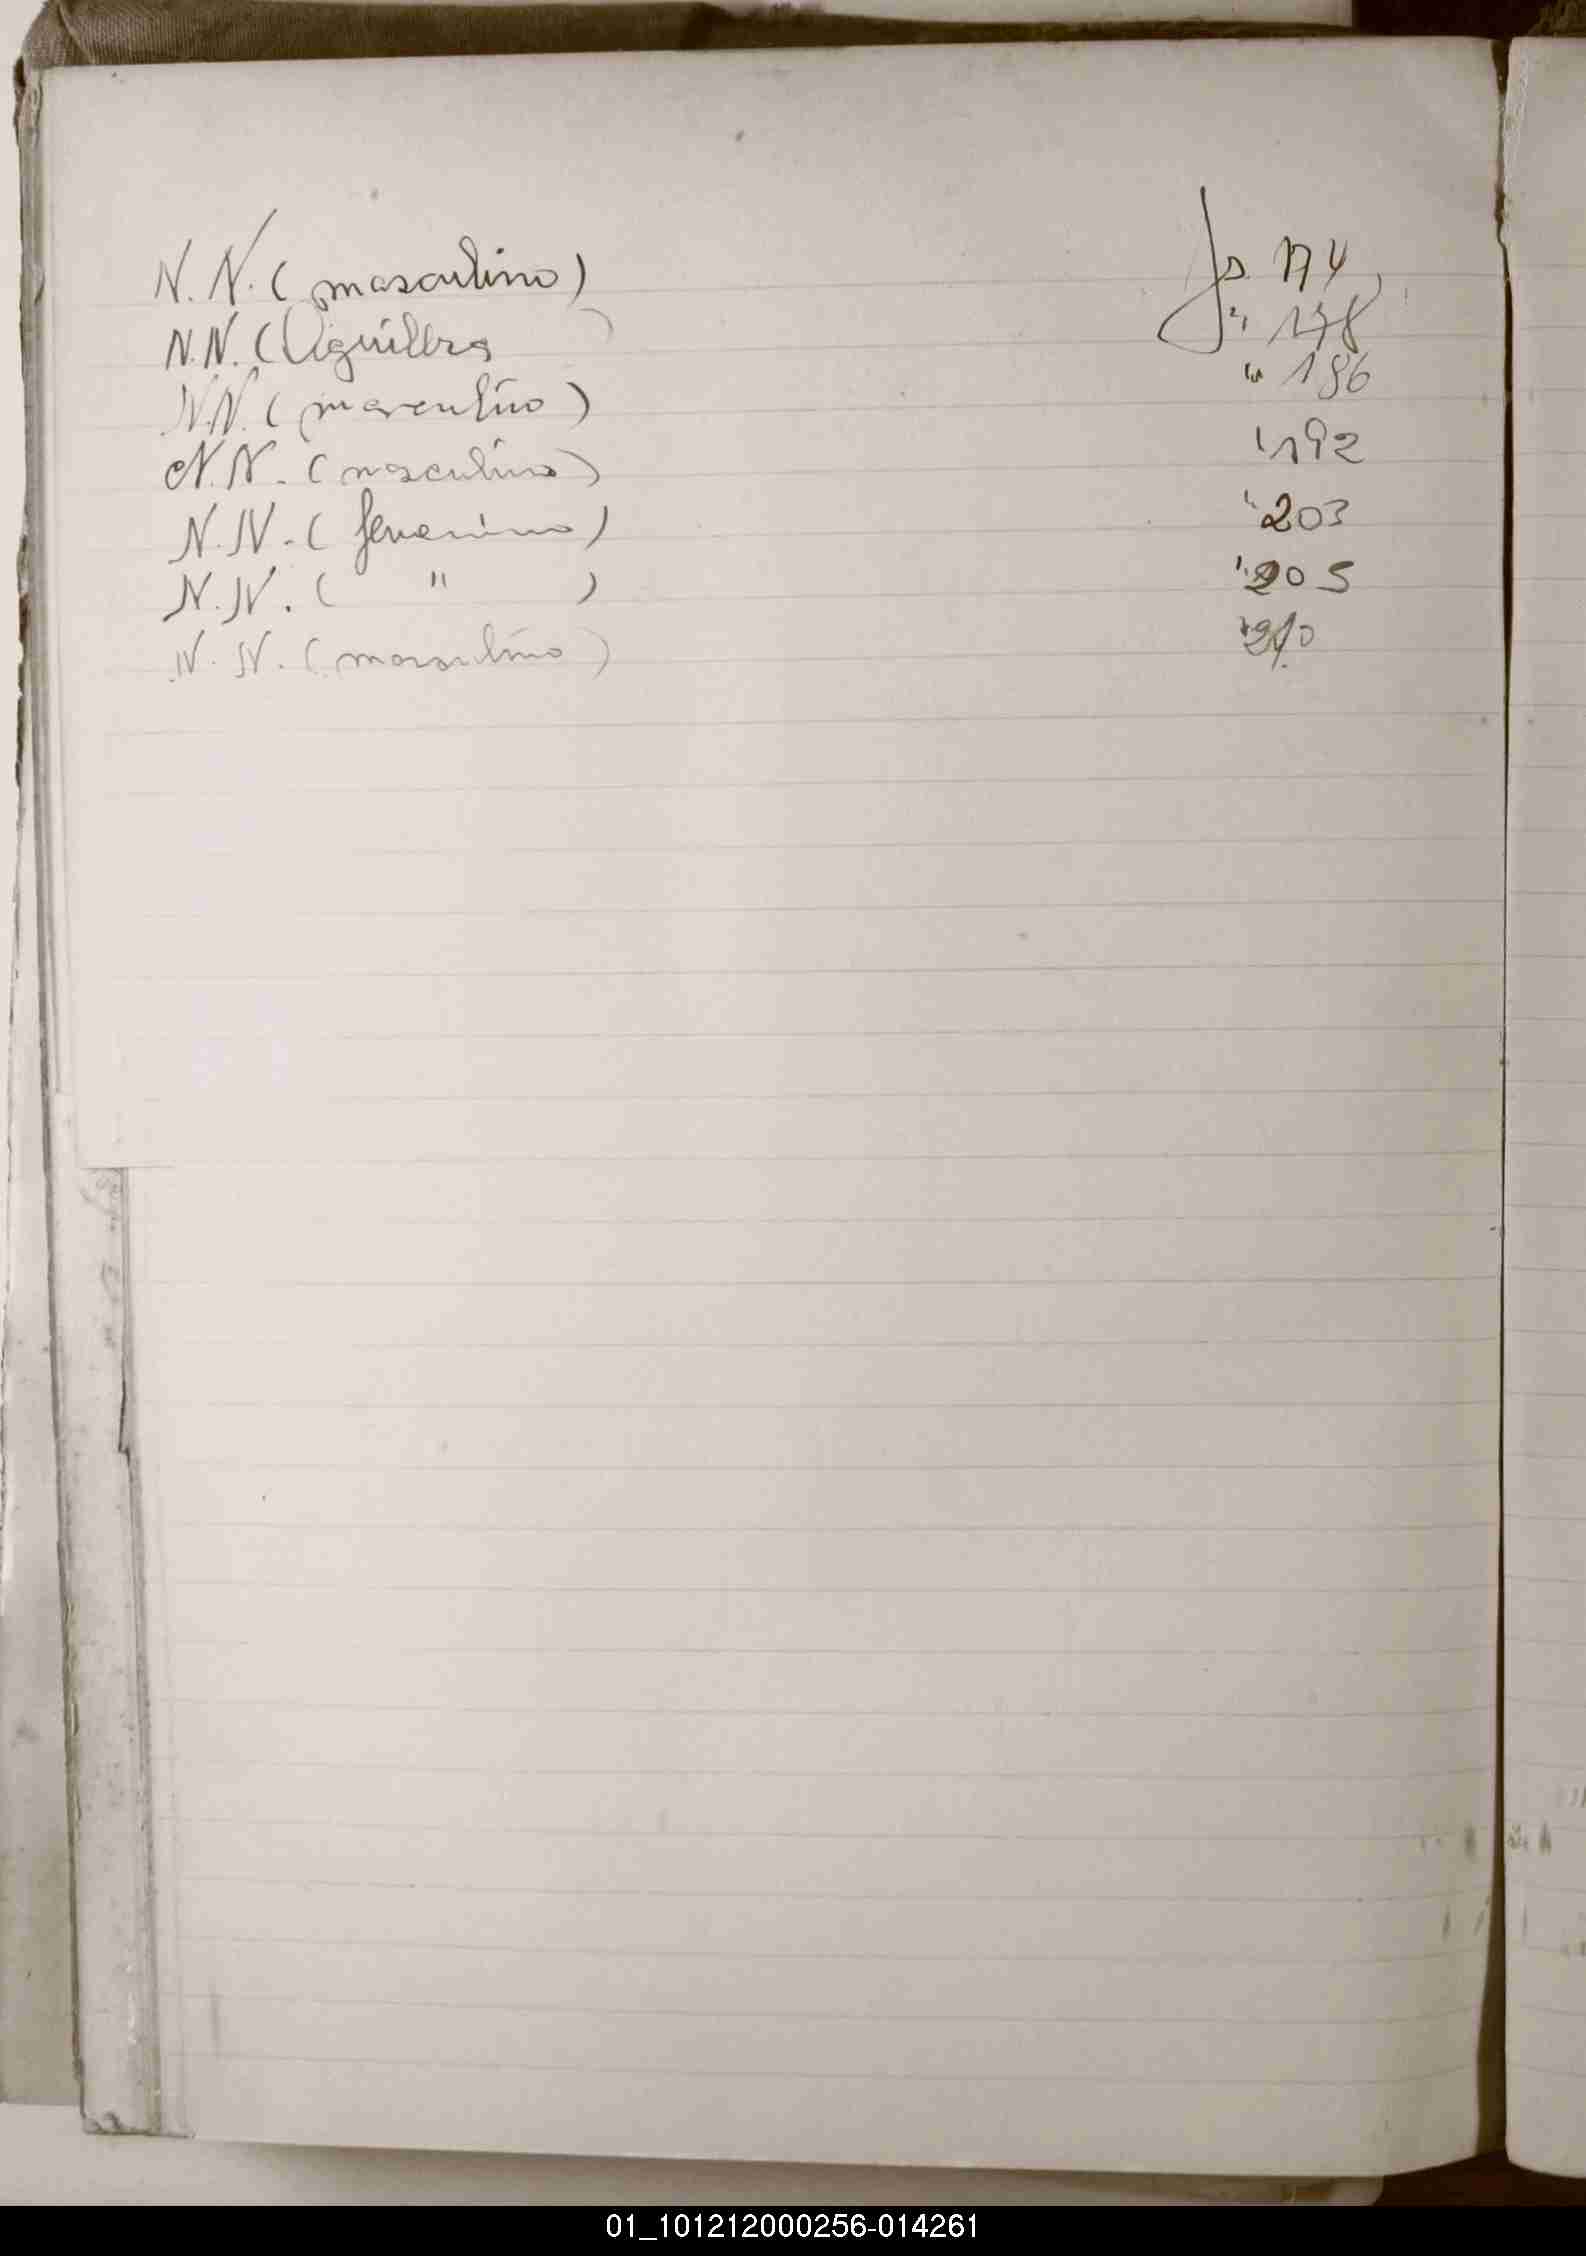 N.N. (masculino) fs. 174
N.N. (Viguillera " 178
N.N. (masculino) " 186
N.N. (masculino) " 192
N.N. (femenino) " 203
N.N. ( " ) " 205
N.N. (masculino) " 210
01_101212000256-014261